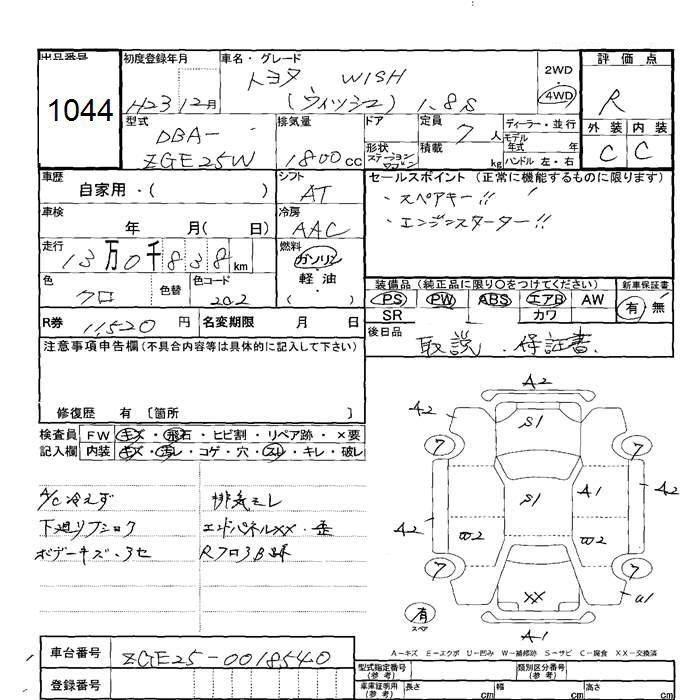 出品番号
1044
初度登録年月
H23 12月
車名・グレード
トヨタ WISH
(ウィッシュ) 1.8S
2WD
4WD
評価点
R
外装 内装
C C
型式
DBA-
ZGE25W
排気量
1800cc
ドア
形状
ステーションワゴン
定員
7人
積載
kg
ディーラー・並行
モデル年式 年
ハンドル 左・右
車歴
自家用・( )
シフト
AT
車検
年 月( 日)
冷房
AAC
走行
13万0千838km
燃料
ガソリン
軽油
( )
色
クロ
色替
色コード
202
R券 11,520円
名変期限 月 日
セールスポイント(正常に機能するものに限ります)
・スペアキー!!
・エンジンスターター!!
装備品(純正品に限り○をつけてください)
PS PW ABS エアB AW
SR カワ
新車保証書
有 無
後日品
取説、保証書、
注意事項申告欄(不具合内容等は具体的に記入して下さい)
修復歴 有 〔箇所 〕
検査員
記入欄
FW キズ・飛石・ヒビ割・リペア跡・×要
内装 キズ・汚レ・コゲ・穴・スレ・キレ・破レ
A/C冷えず
下廻りフショク
ボデーキズ・ヨセ
排気モレ
エンドパネルXX・歪
A2
A2
A2
S1
7
7
S1
A1
A2
A2
W2
W2
7
7
XX
A1
有
スペア
A－キズ E－エクボ U－凹み W－補修跡 S－サビ C－腐食 XX－交換済
車台番号
ZGE25-0018540
登録番号
型式指定番号
(参考)
類別区分番号
(参考)
車庫証明用
(参考)
長さ cm
幅 cm
高さ cm